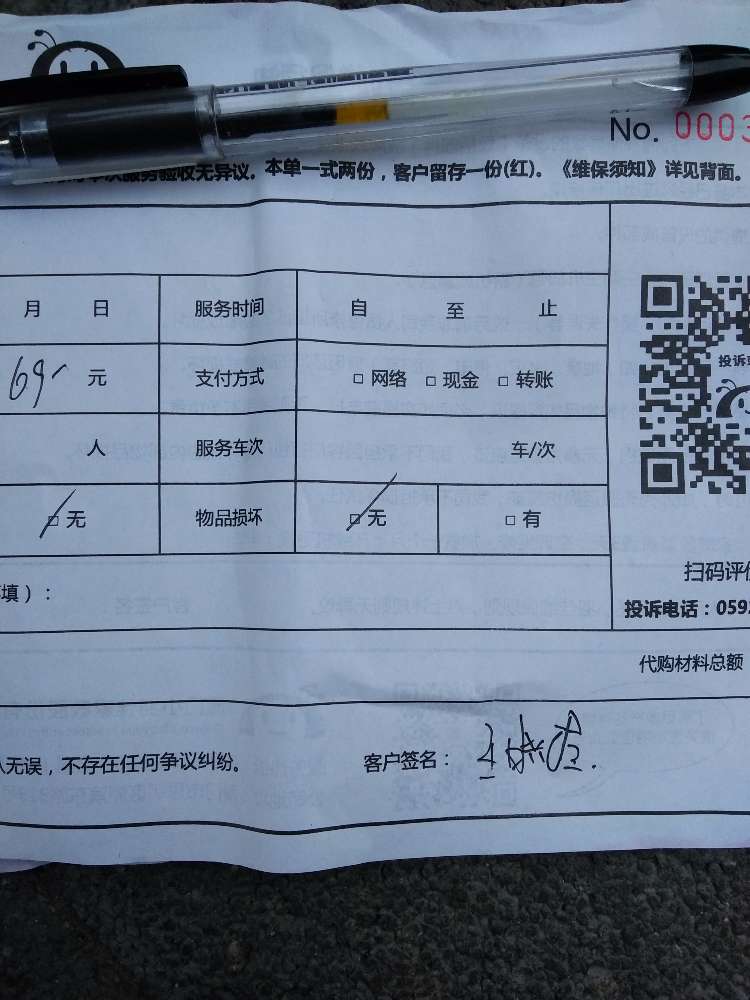 No. 0003
次服务验收无异议。本单一式两份，客户留存一份(红)。《维保须知》详见背面。
月 日 服务时间 自 至 止
69 元 支付方式 □ 网络 □ 现金 □ 转账
投诉
人 服务车次 车/次
□ 无 物品损坏 □ 无 □ 有
扫码评价
填）：
投诉电话：059
代购材料总额
人无误，不存在任何争议纠纷。 客户签名：